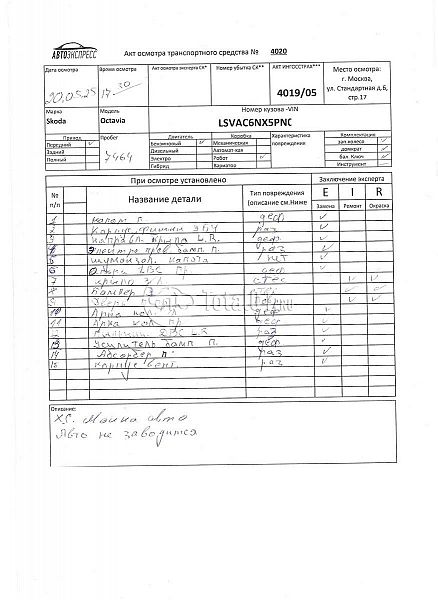 АВТОЭКСПРЕСС
Акт осмотра транспортного средства № 4020
Дата осмотра
20.05.25
Время осмотра
17.30
Акт осмотра эксперта СК*
Номер убытка СК**
АКТ ИНГОССТРАХ***
4019/05
Место осмотра:
г. Москва,
ул. Стандартная д.6,
стр.17
Марка
Skoda
Модель
Octavia
Номер кузова -VIN
LSVAC6NX5PNC
Привод
Передний ✓
Задний
Полный
Пробег
7464
Двигатель
Бензиновый ✓
Дизельный
Электро
Коробка
Механическая
Автомат-кая
Робот ✓
Вариатор
Характеристика
повреждения
Комплектация
зап колесо ✓
домкрат
бал. Ключ ✓
Инструмент —
При осмотре установлено
Заключение эксперта
№
п/п
Название детали
Тип повреждения
(описание см.Ниже
E I R
Замена Ремонт Окраска
1 капот п. деф ✓
2 раз ✓
3 крыла L.R. деф ✓
4 бамп. п. раз ✓
5 шумоизол. капота нет ✓
6 ДВС пр. деф ✓
7 крыло з/л ✓ ✓
8 ✓ ✓
9 ✓ ✓
10 Арка кол. л деф ✓
11 Арка кол. пр деф ✓
12 L.R раз ✓
13 Усилитель бамп п. деф ✓
14 Абсорбер п. раз ✓
15 раз ✓
Описание:
Х/С. Мойка авто
Авто не заводится